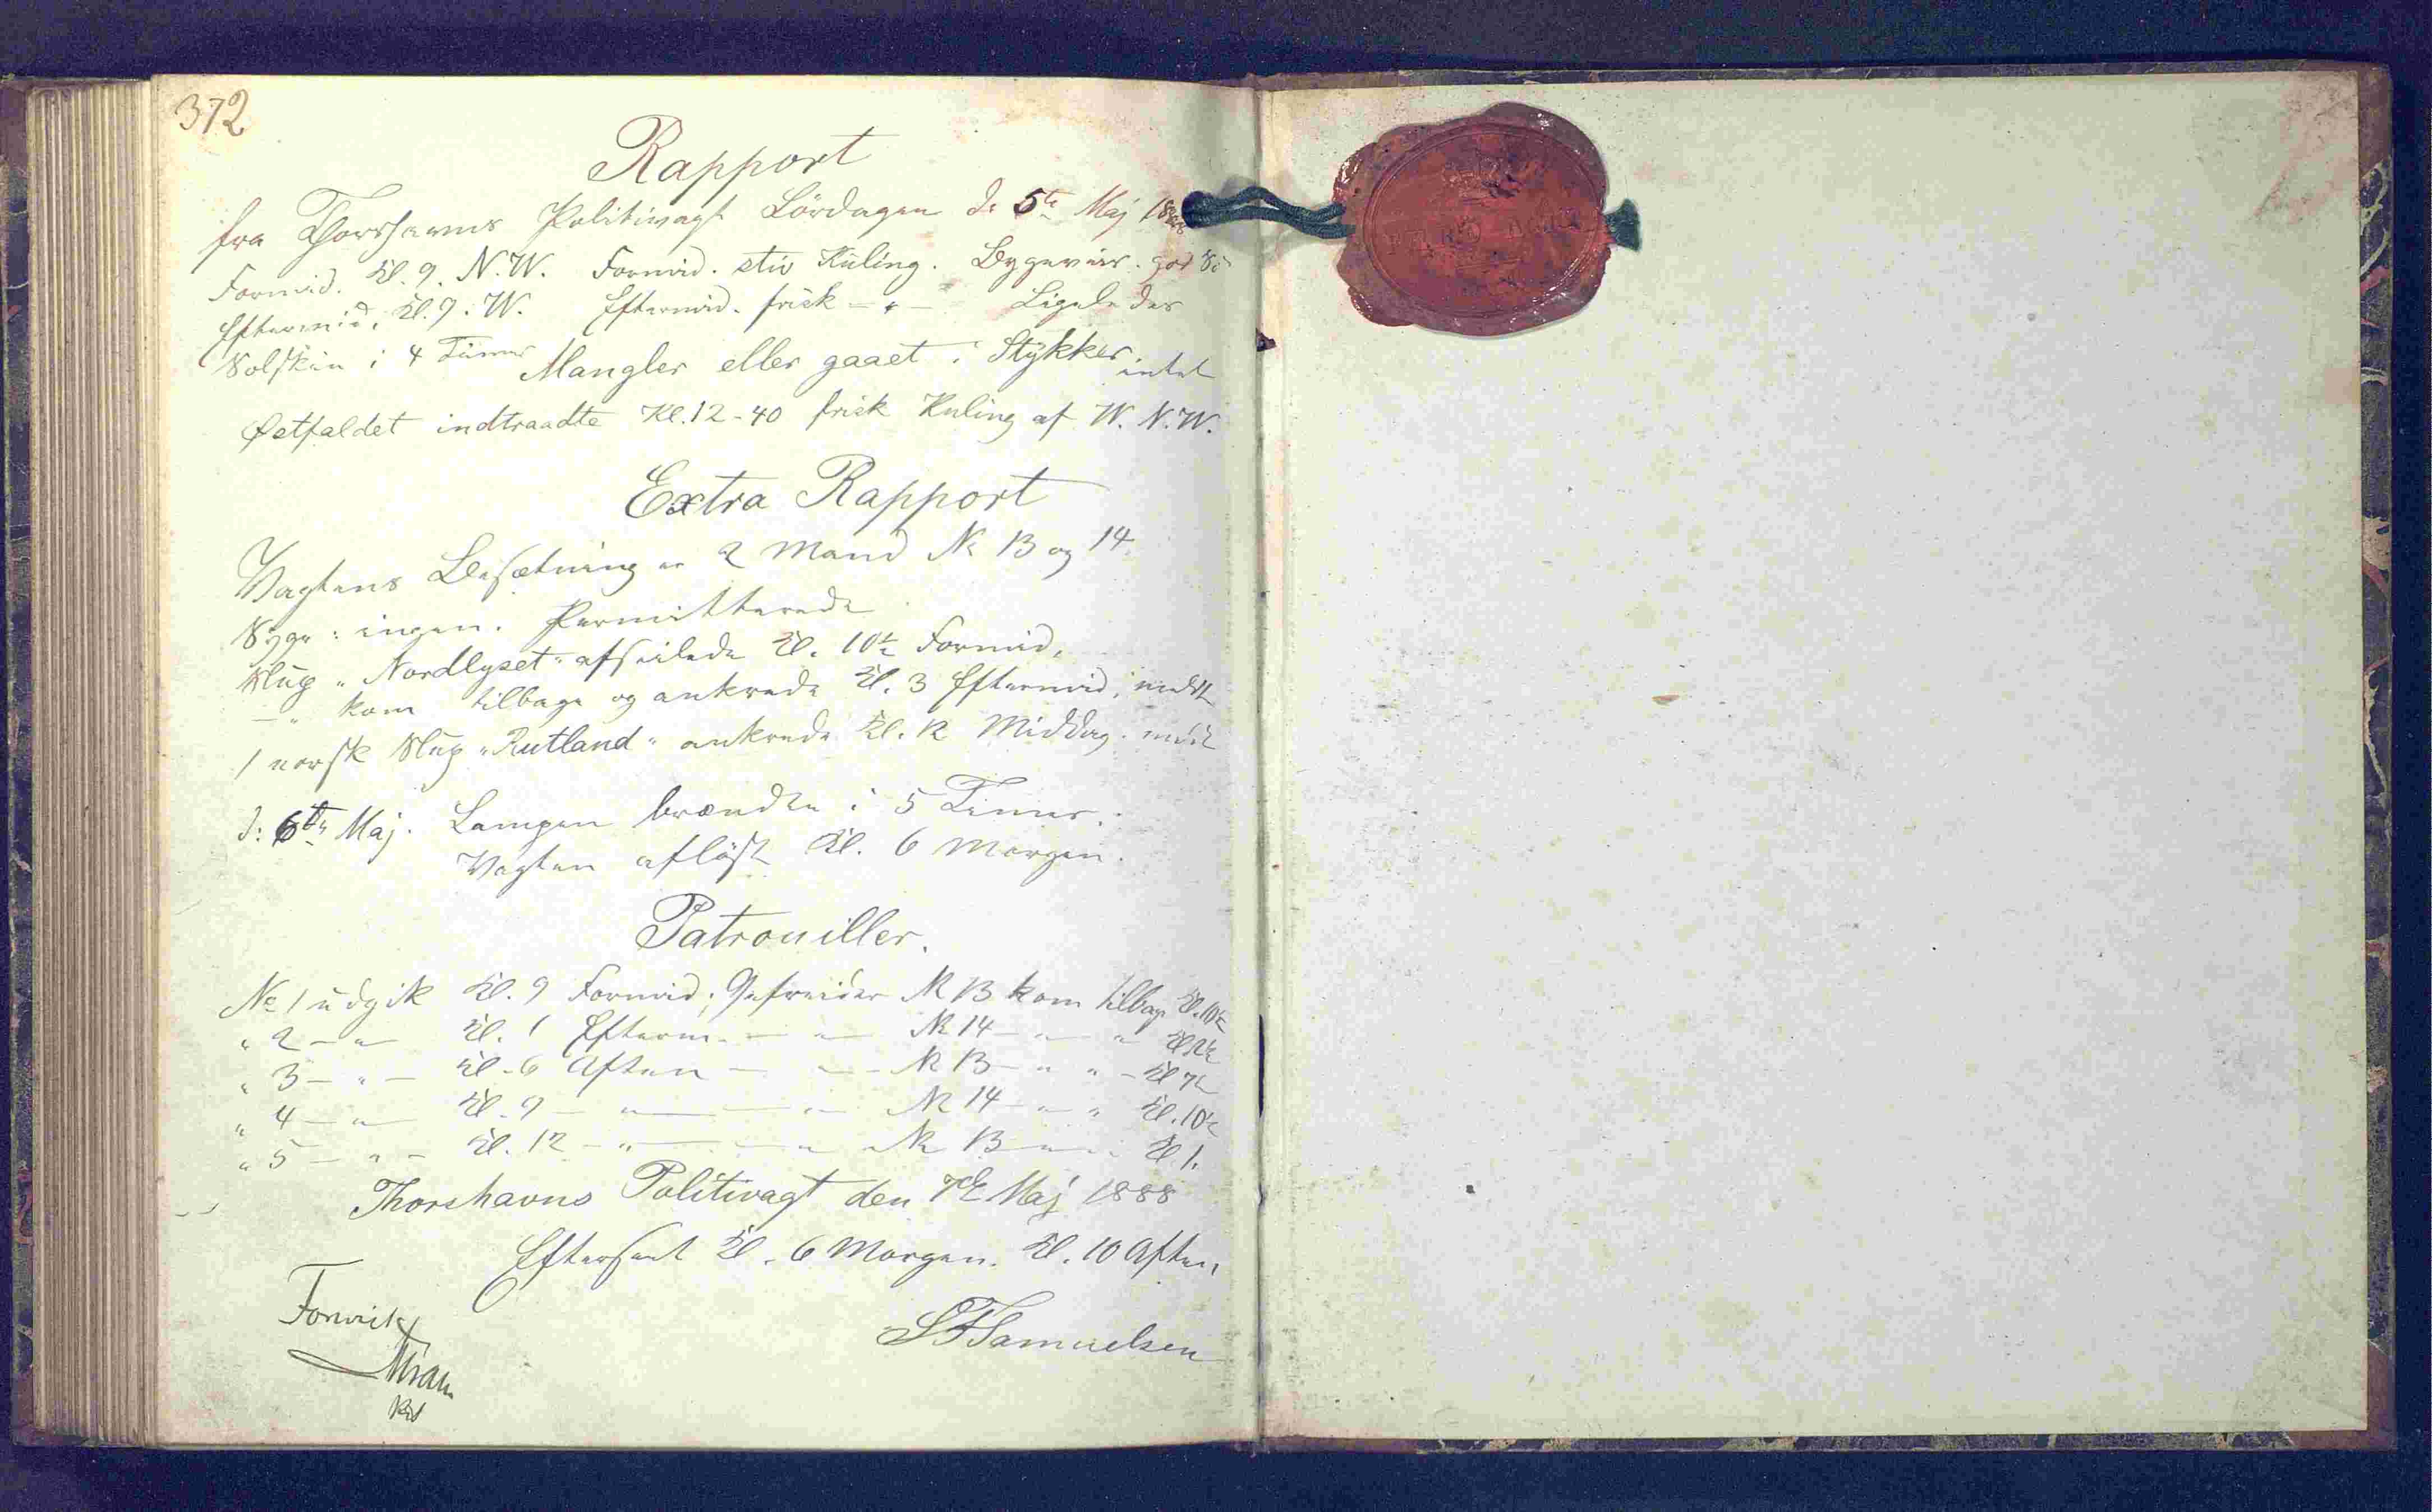 372
Rapport
fra Thorshavns Politivagt Lördagen d: 5te Maj 1888
Formid. Kl. 9. N.W. Formid. stiv Kuling. Bygeveir. god
Eftermid. Kl. 9. W. Eftermid. frisk — " — Ligeledes
Solskin i 4 Timer Mangler eller gaaet i Stykker intet
Østfaldet indtraadte Kl. 12-40 frisk Kuling af W.N.W.
Extra Rapport
Vagtens Besætning er 2 Mand No 13 og 14.
Syge: ingen. Permitterede
Slup „Nordlyset" afseilede Kl. 10½ Formid.
— " kom tilbage og ankrede Kl. 3 Eftermid; meldt
1 norsk Slup „Rutland" ankrede Kl. 12 Middag. meldt
d: 6te Maj. Lampen brændte i 5 Timer.
Vagten aflöst Kl. 6 Morgen.
Patrouiller.
No 1 udgik Kl. 9 Formid; Gefreider No 13 kom tilbage Kl. 10½
" 2 — " — Kl. 1 Efterm. — " — No 14 — " — "
" 3 — " — Kl. 6 Aften — " — No 13 — " — " — Kl 7½
" 4 — " — Kl. 9 — " — " — No 14 — " — " Kl. 10½
" 5 — " — Kl. 12 — " — " — No 13 — " — " Kl 1.
Thorshavns Politivagt den 7de Maj 1888
Efterseet Kl. 6 Morgen. Kl. 10 Aften.
Forevist
SFSamuelsen